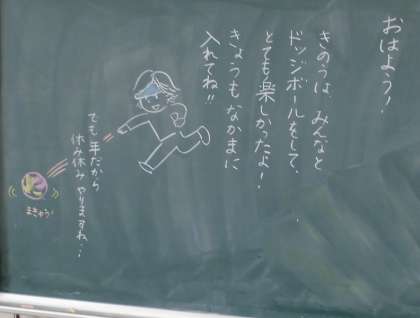 おはよう!
きのうは、みんなと
ドッジボールをして、
とても楽しかったよ!
きょうもなかまに
入れてね!!
でも年だから
休み休みやりますね…
まきゅう!